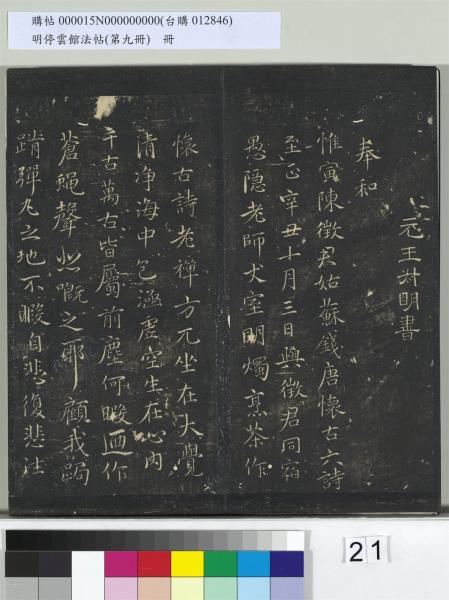 購帖 000015N000000000(台購 012846)
明停雲館法帖(第九冊) 冊
元王叔明書
奉和
惟寅陳徵君姑蘇錢唐懷古六詩
至正辛丑十月三日與徵君同宿
愚隱老師丈室明燭烹茶作
懷古詩老禪方兀坐在大覺
清淨海中包涵虛空生在心內
千古萬古皆屬前塵何暇迺作
蒼蠅聲悲慨之耶顧我跼
蹐彈丸之地不暇自悲復悲往
21